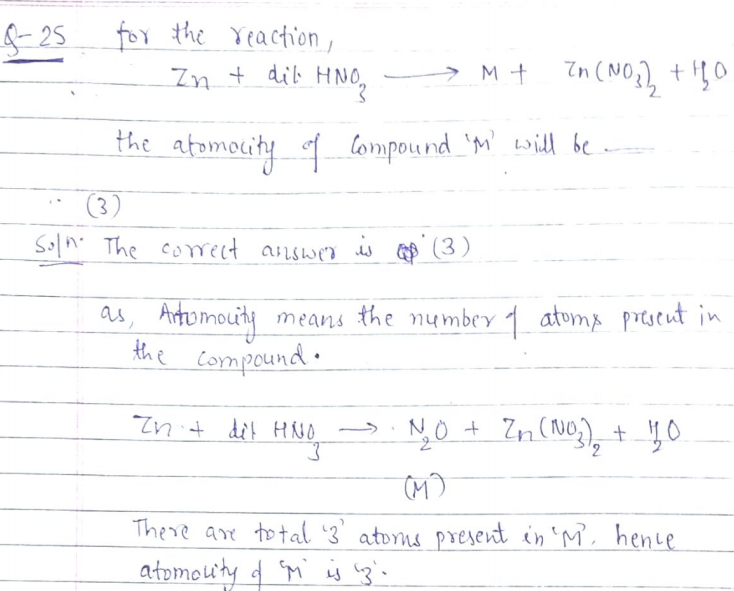 Q-25 for the reaction,
Zn + dil. HNO₃ ⟶ M + Zn(NO₃)₂ + H₂O
the atomocity of Compound 'M' will be —
(3)
Soln. The correct answer is (3)
as, Atomocity means the number of atoms present in
the compound.
Zn + dil HNO₃ ⟶ N₂O + Zn(NO₃)₂ + H₂O
(M)
There are total '3' atoms present in 'M'. hence
atomocity of 'M' is '3'.